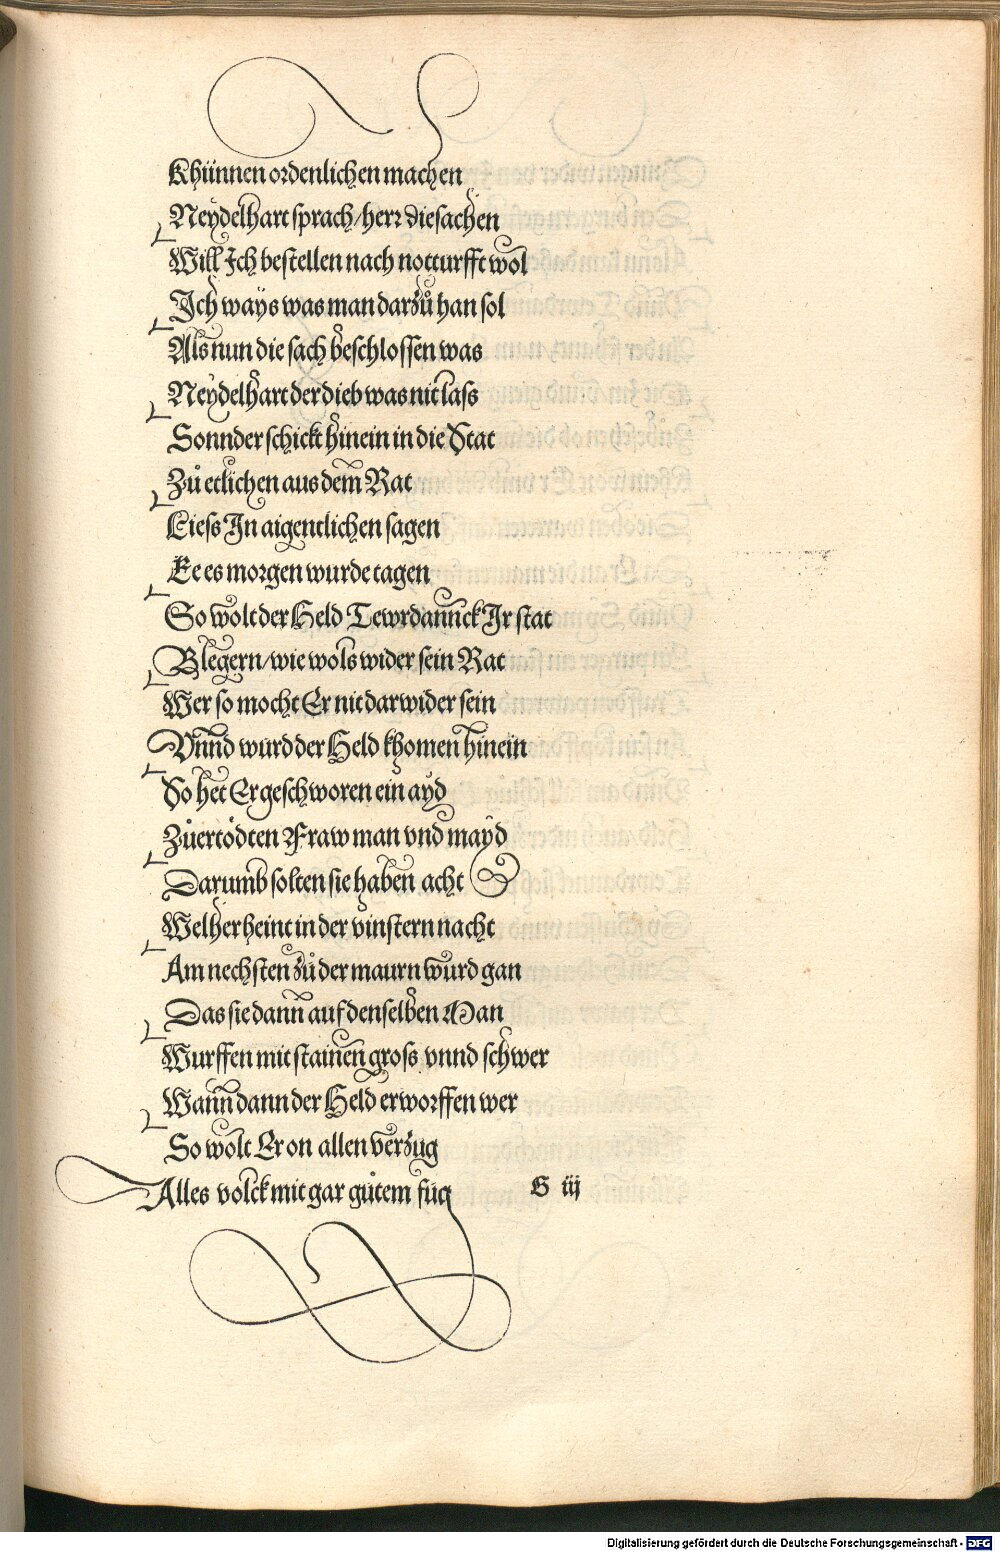 Khünnen ordenlichen machen
Neydelhart sprach herr die sachen
Will Ich bestellen nach notturfft wol
Ich ways was man darzů han sol
Als nun die sach beschlossen was
Neydelhart der dieb was nit lass
Sonnder schickt hinein in die Stat
Zů etlichen aus dem Rat
Liess In aigentlichen sagen
Ee es morgen wurde tagen
So wolt der Held Tewrdannck Ir stat
Blegern/wie wols wider sein Rat
Wer so mocht Er nit darwider sein
Vnnd wurd der Held khomen hinein
So het Er geschworen ein ayd
Zůertödten Fraw man vnd mayd
Darumb solten sie haben acht
Welher heint in der vinstern nacht
Am nechsten zů der maurn wurd gan
Das sie dann auf denselben Man
Wurffen mit stainen gross vnnd schwer
Wann dann der Held erworffen wer
So wolt Er on allen verzug
Alles volck mit gar gůtem fůg
S iij
Digitalisierung gefördert durch die Deutsche Forschungsgemeinschaft - DFG